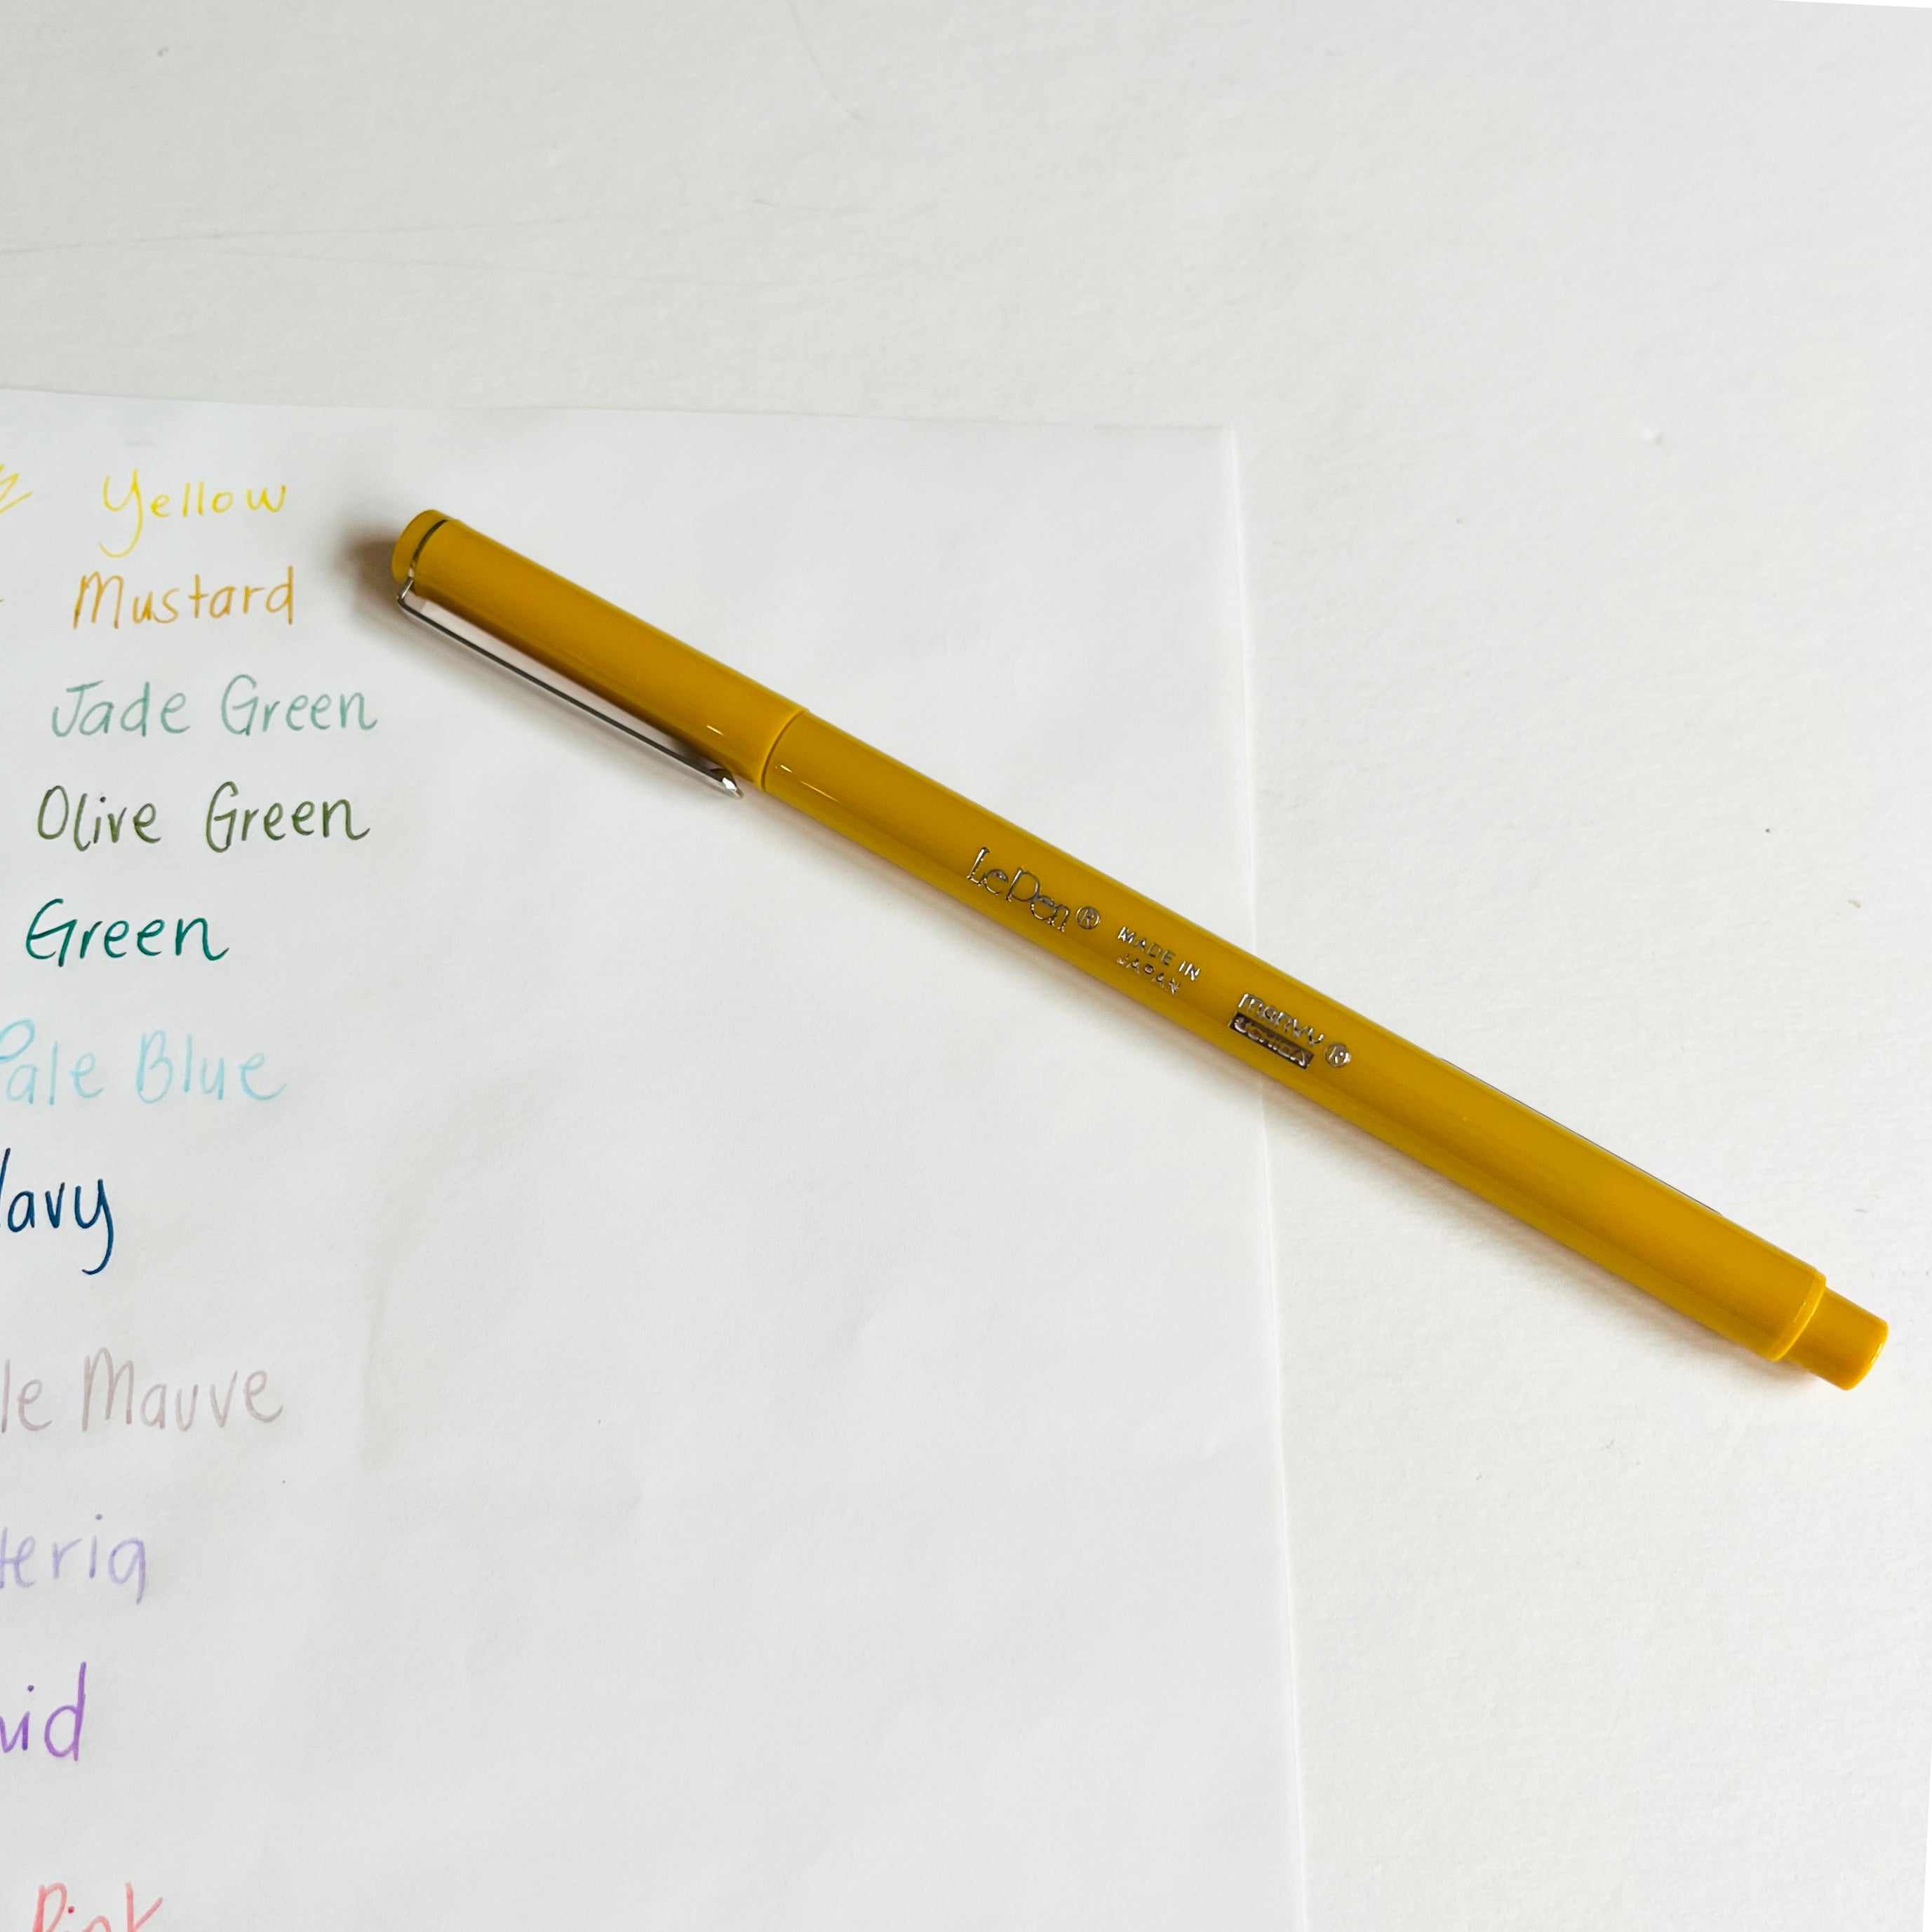 Yellow
Mustard
Jade Green
Olive Green
Green
Pale Blue
avy
le Mauve
teria
id
Pink
LePen®
MADE IN
JAPAN
marvy®
UCHIDA